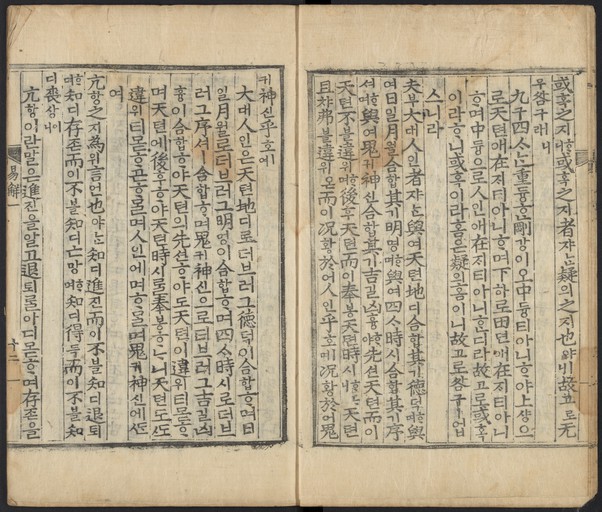 或혹之지ᄒᆞ니或혹之지者쟈ᄂᆞᆫ疑의之지也야ㅣ니故고로无
무咎구ㅣ라
九구四ᄉᆞᄂᆞᆫ重듕ᄒᆞᆫ剛강이오中듕티아니ᄒᆞ야上샹으
로天텬애在ᄌᆡ티아니ᄒᆞ며下하로田뎐애在ᄌᆡ티아니
ᄒᆞ며中듕으로人인애在ᄌᆡ티아니ᄒᆞᆫ디라故고로或혹
이라ᄒᆞ니或혹이라홈은疑의홈이니故고로咎구ㅣ업
스니라
夫부大대人인者쟈ᄂᆞᆫ與여天텬地디合합其기德덕ᄒᆞ며與
여日일月월合합其기明명ᄒᆞ며與여四ᄉᆞ時시合합其기序
셔ᄒᆞ며與여鬼귀神신合합其기吉길凶흉ᄒᆞ야先션天텬而이
天텬不블違위ᄒᆞ며後후天텬而이奉봉天텬時시ᄒᆞᄂᆞ니天텬
且챠弗블違위온而이况황於어人인乎호ㅣ며况황於어鬼
귀神신乎호ㅣ여
大대人인은天텬地디로더브러그德덕이合합ᄒᆞ며日
일月월로더브러그明명이合합ᄒᆞ며四ᄉᆞ時시로더브
러그序셔ㅣ合합ᄒᆞ며鬼귀神신으로더브러그吉길凶
흉이合합ᄒᆞ야天텬의先션ᄒᆞ야도天텬이違위티몯ᄒᆞ
며天텬에後후ᄒᆞ야天텬時시ᄅᆞᆯ奉봉ᄒᆞᄂᆞ니天텬도ᄯᅩ
違위티몯ᄒᆞ곤ᄒᆞ믈며人인에며ᄒᆞ믈며鬼귀神신에ᄯᆞ
여
亢항之지爲위言언也야ᄂᆞᆫ知디進진而이不블知디退퇴
ᄒᆞ며知디存존而이不블知디亡망ᄒᆞ며知디得득而이不블知
디喪상이니
亢항이란말은進진을알고退퇴ᄅᆞᆯ아디몯ᄒᆞ며存존을
易解
十二